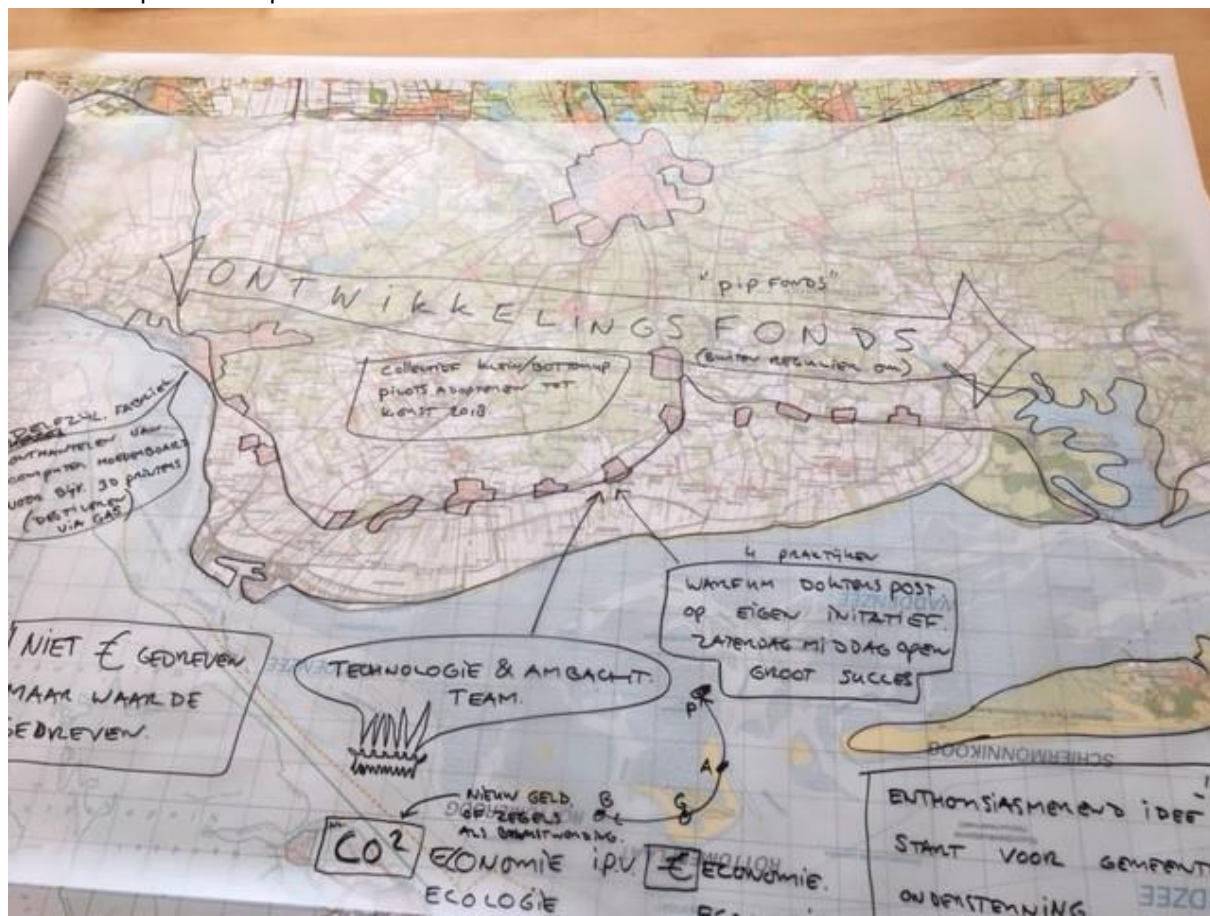 ONTWIKKELINGSFONDS
"PIP FONDS"
(BUITEN REGULIER OM)
COLLECTIEF KLEIN/BOTTOMUP
PILOTS ADOPTEREN TOT
KERST 2018.
DELFZIJL. FABRIEK
ONTMANTELEN VAN
COMPUTER MOEDERBOARDS
VOOR BIJV. 3D PRINTERS
(DESTILEREN
VIA GAS)
4 PRAKTIJKEN
WARFUM DOKTERSPOST
OP EIGEN INITATIEF.
ZATERDAG MIDDAG OPEN
GROOT SUCCES
NIET € GEDREVEN
MAAR WAARDE
GEDREVEN.
TECHNOLOGIE & AMBACHT.
TEAM.
P
A
G
B
NIEUW GELD
OF ZEGELS
ALS
CO²
ECONOMIE I.P.V. € ECONOMIE.
ECOLOGIE
ENTHOUSIASMEREND IDEE
START VOOR GEMEENT
ONDERSTEUNING
SCHIERMONNIKOOG
WADDENZEE